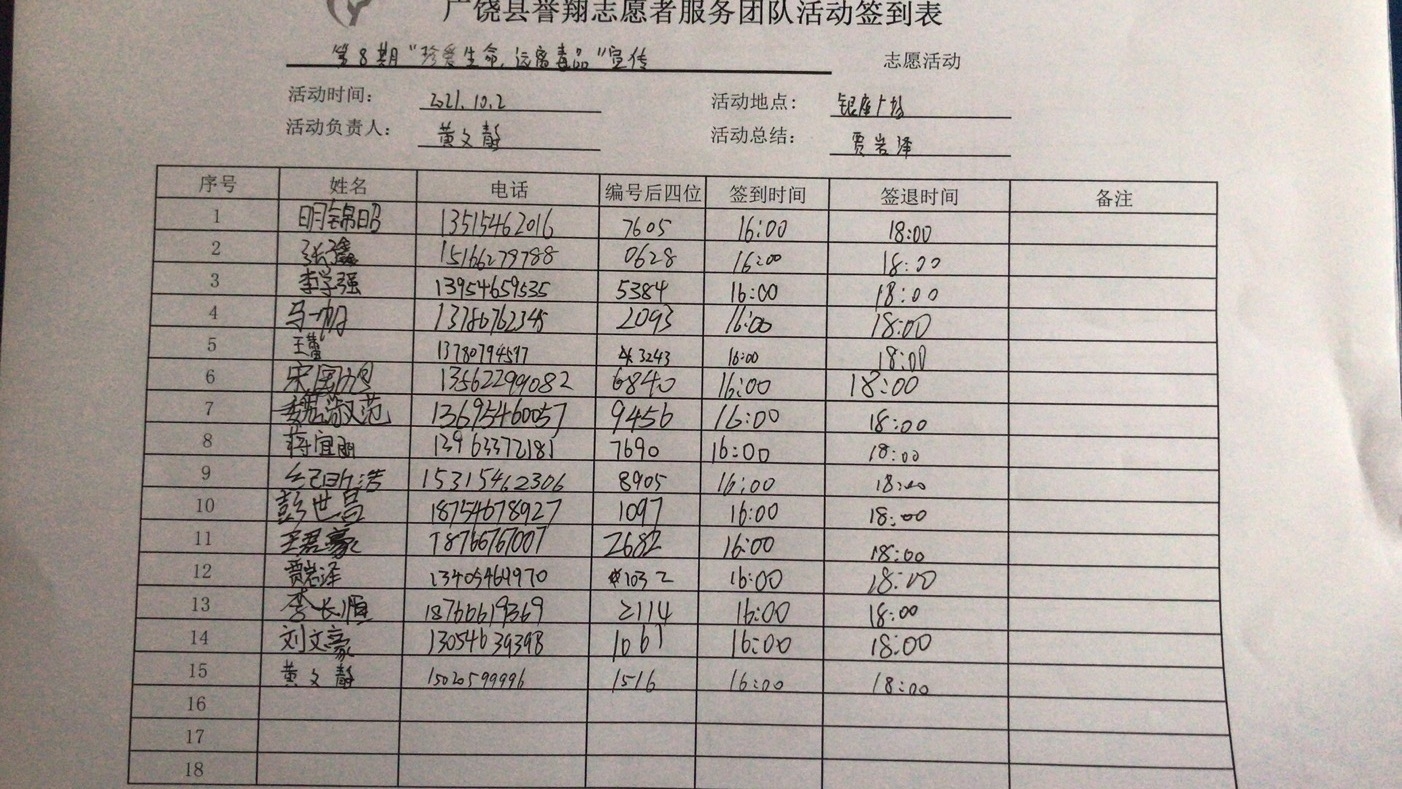 广饶县誉翔志愿者服务团队活动签到表
第8期"珍爱生命,远离毒品"宣传 志愿活动
活动时间: 2021.10.2 活动地点: 银座广场
活动负责人: 黄文静 活动总结: 贾岩泽
序号 姓名 电话 编号后四位 签到时间 签退时间 备注
1 明锦昭 13515462016 7605 16:00 18:00
2 张鑫 15166279788 0628 16:00 18:00
3 李学强 13954659535 5384 16:00 18:00
4 马一帆 13780762345 2093 16:00 18:00
5 王蕾 13780794597 3243 16:00 18:00
6 13562299082 6840 16:00 18:00
7 魏淑范 13695460057 9456 16:00 18:00
8 蒋宜 13963372181 7690 16:00 18:00
9 15315462306 8905 16:00 18:00
10 彭世昌 18754678927 1097 16:00 18:00
11 王君豪 18766767007 2682 16:00 18:00
12 贾岩泽 13405469970 1032 16:00 18:00
13 李长顺 18766619369 2114 16:00 18:00
14 刘文豪 13054639398 1061 16:00 18:00
15 黄文静 15020599996 1516 16:00 18:00
16
17
18